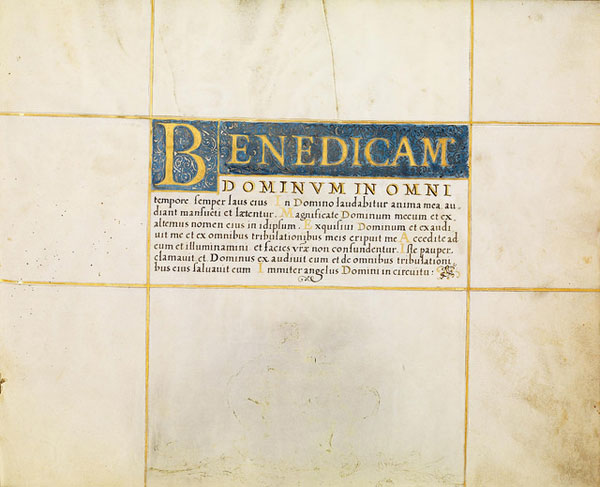 BENEDICAM
DOMINVM IN OMNI
tempore semper laus eius In Domino laudabitur anima mea au-
diant mansueti et lætentur. Magnificate Dominum mecum et ex-
altemus nomen eius in idipsum. Exquisiui Dominum et exaudi
uit me et ex omnibus tribulationibus meis eripuit me Accedite ad
eum et illuminamini et facies vr̄æ non confundentur. Iste pauper
clamauit et Dominus exaudiuit eum et de omnibus tribulationi-
bus eius saluauit eum Immiter angelus Domini in circuitu: